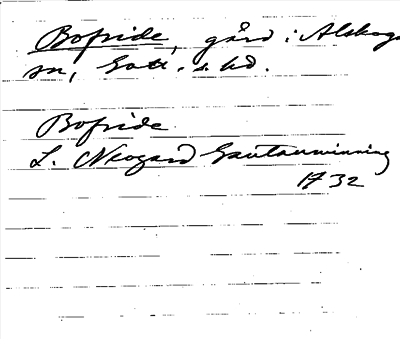 Bofride, gård i Alskogs
sn, Gotl. s. hd.
Bofride
L. Neogard Gautauminning
1732